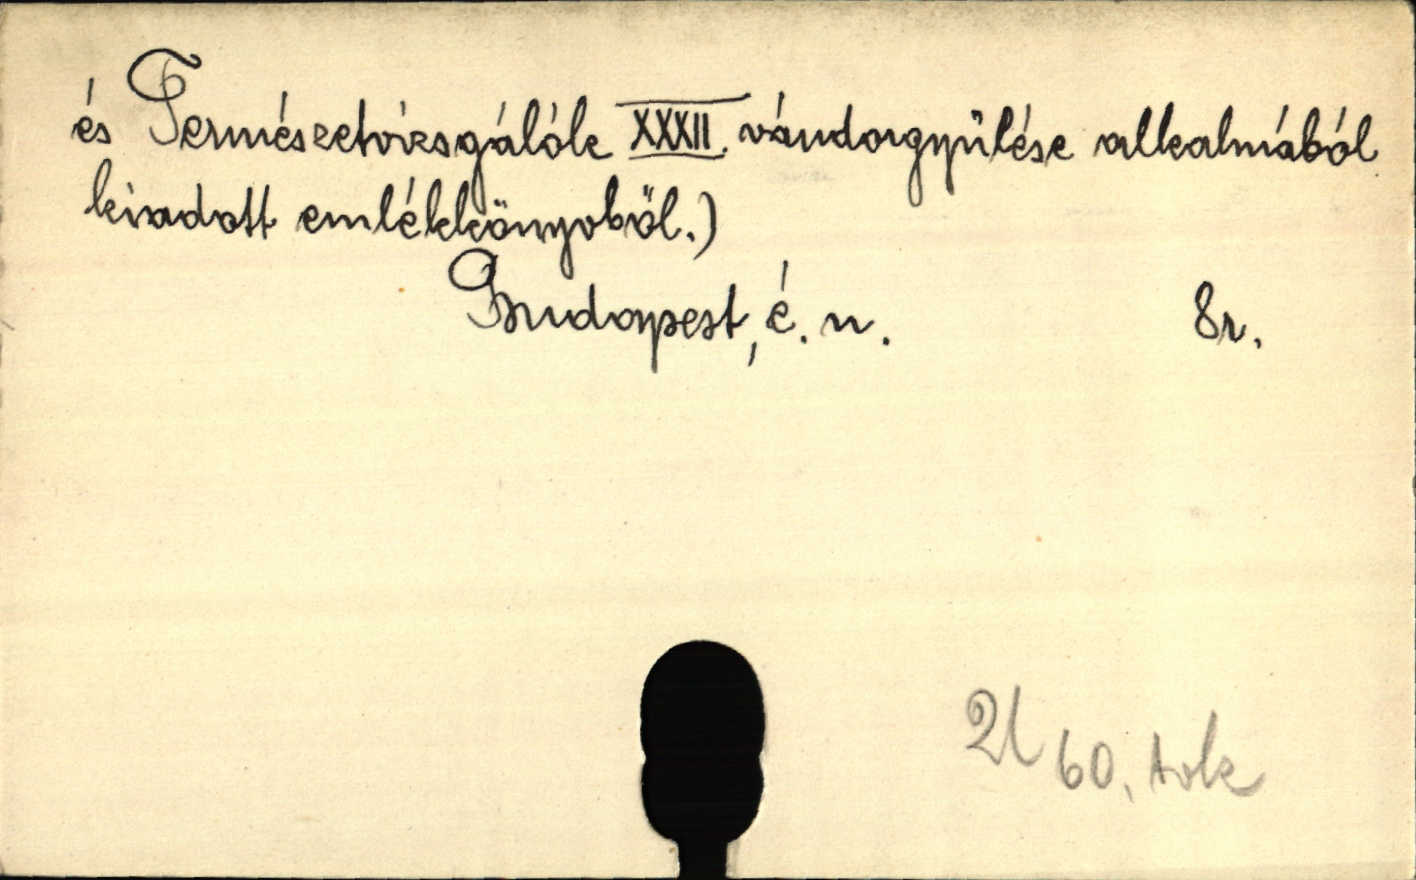 és Természetvizsgálók XXXII. vándorgyülése alkalmából
kiadott emlékkönyvből.)
Budapest, é. n. 8r.
60. tok